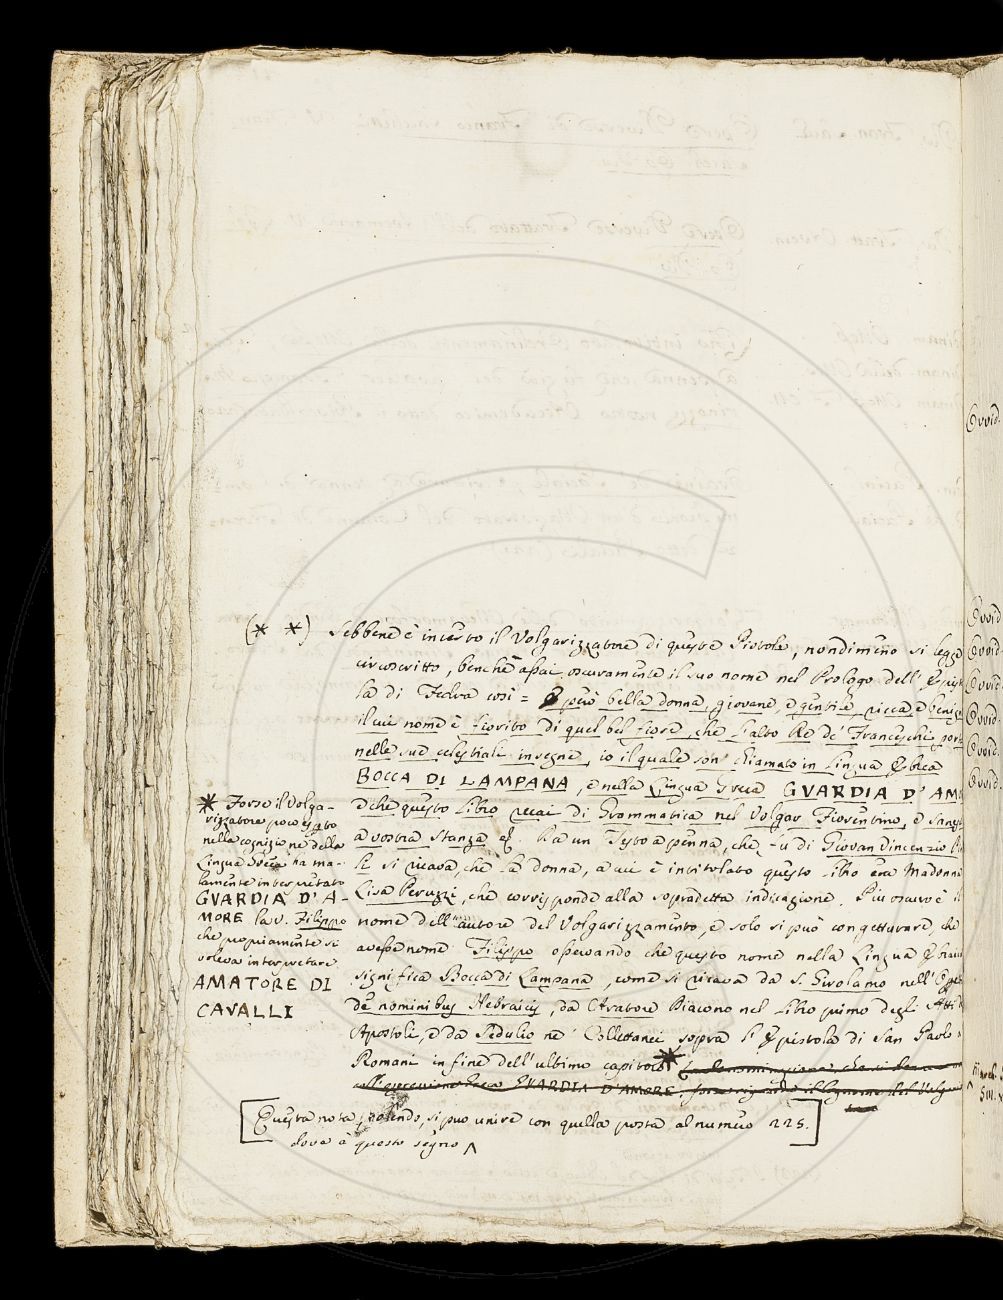 (* *) Sebbene è incerto il Volgarizzatore di queste Pistole, nondimeno si legge
circoscritto, benchè assai oscuramente il suo nome nel Prologo dell'
la di Fedra così = più bella donna, giovane, e gentile, ricca e
il cui nome è fiorito di quel bel fiore, che l'alto Re de' Franceschi
nelle sue celestiali insegne, io il quale son chiamato in lingua
BOCCA DI LAMPANA, e nella Lingua Greca GVARDIA D' AM
che questo Libro recai di Grommatica nel Volgar Fiorentino, e
a vostra stanza Da un Testo a penna, che fu di Giovan Vincenzio
si ricava, che la donna, a cui è intitolato questo libro era Madonna
Lisa Peruzzi, che corrisponde alla sopradetta indicazione. Più oscuro è il
nome dell' autore del Volgarizzamento, e solo si può congetturare, che
avesse nome Filippo osservando che questo nome nella Lingua
significa Bocca di Lampana, come si ricava da S. Girolamo nell'
de nominibus Hebraicis, da Aratore Diacono nel libro primo degli Atti
Apostoli, e da Sedulio ne' Collettanei sopra l' Epistola di San Paolo
Romani in fine dell' ultimo capitolo *
GVARDIA D'AMORE
* Forse il Volga-
rizzatore poco esperto
nella cognizione della
Lingua Greca ha ma-
lamente interpretato
GVARDIA D' A-
MORE la v. Filippo
che propriamente si
voleva interpretare
AMATORE DI
CAVALLI
Questa nota, potendo, si può unire con quella posta al numero 225.
dove è questo segno ^
Ovvid.
Ovvid
Ovvid.
Ovvid
Ovvid.
Ovvid.
Ovvid.